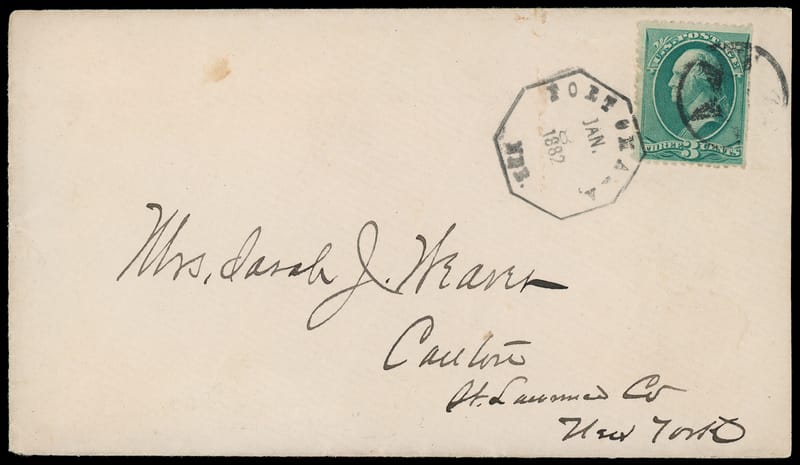 U.S. POSTAGE
THREE 3 CENTS
FORT OMAHA
JAN.
8
1882
NEB.
Mrs. Sarah J. Weaver
Canton
St. Lawrence Co
New York